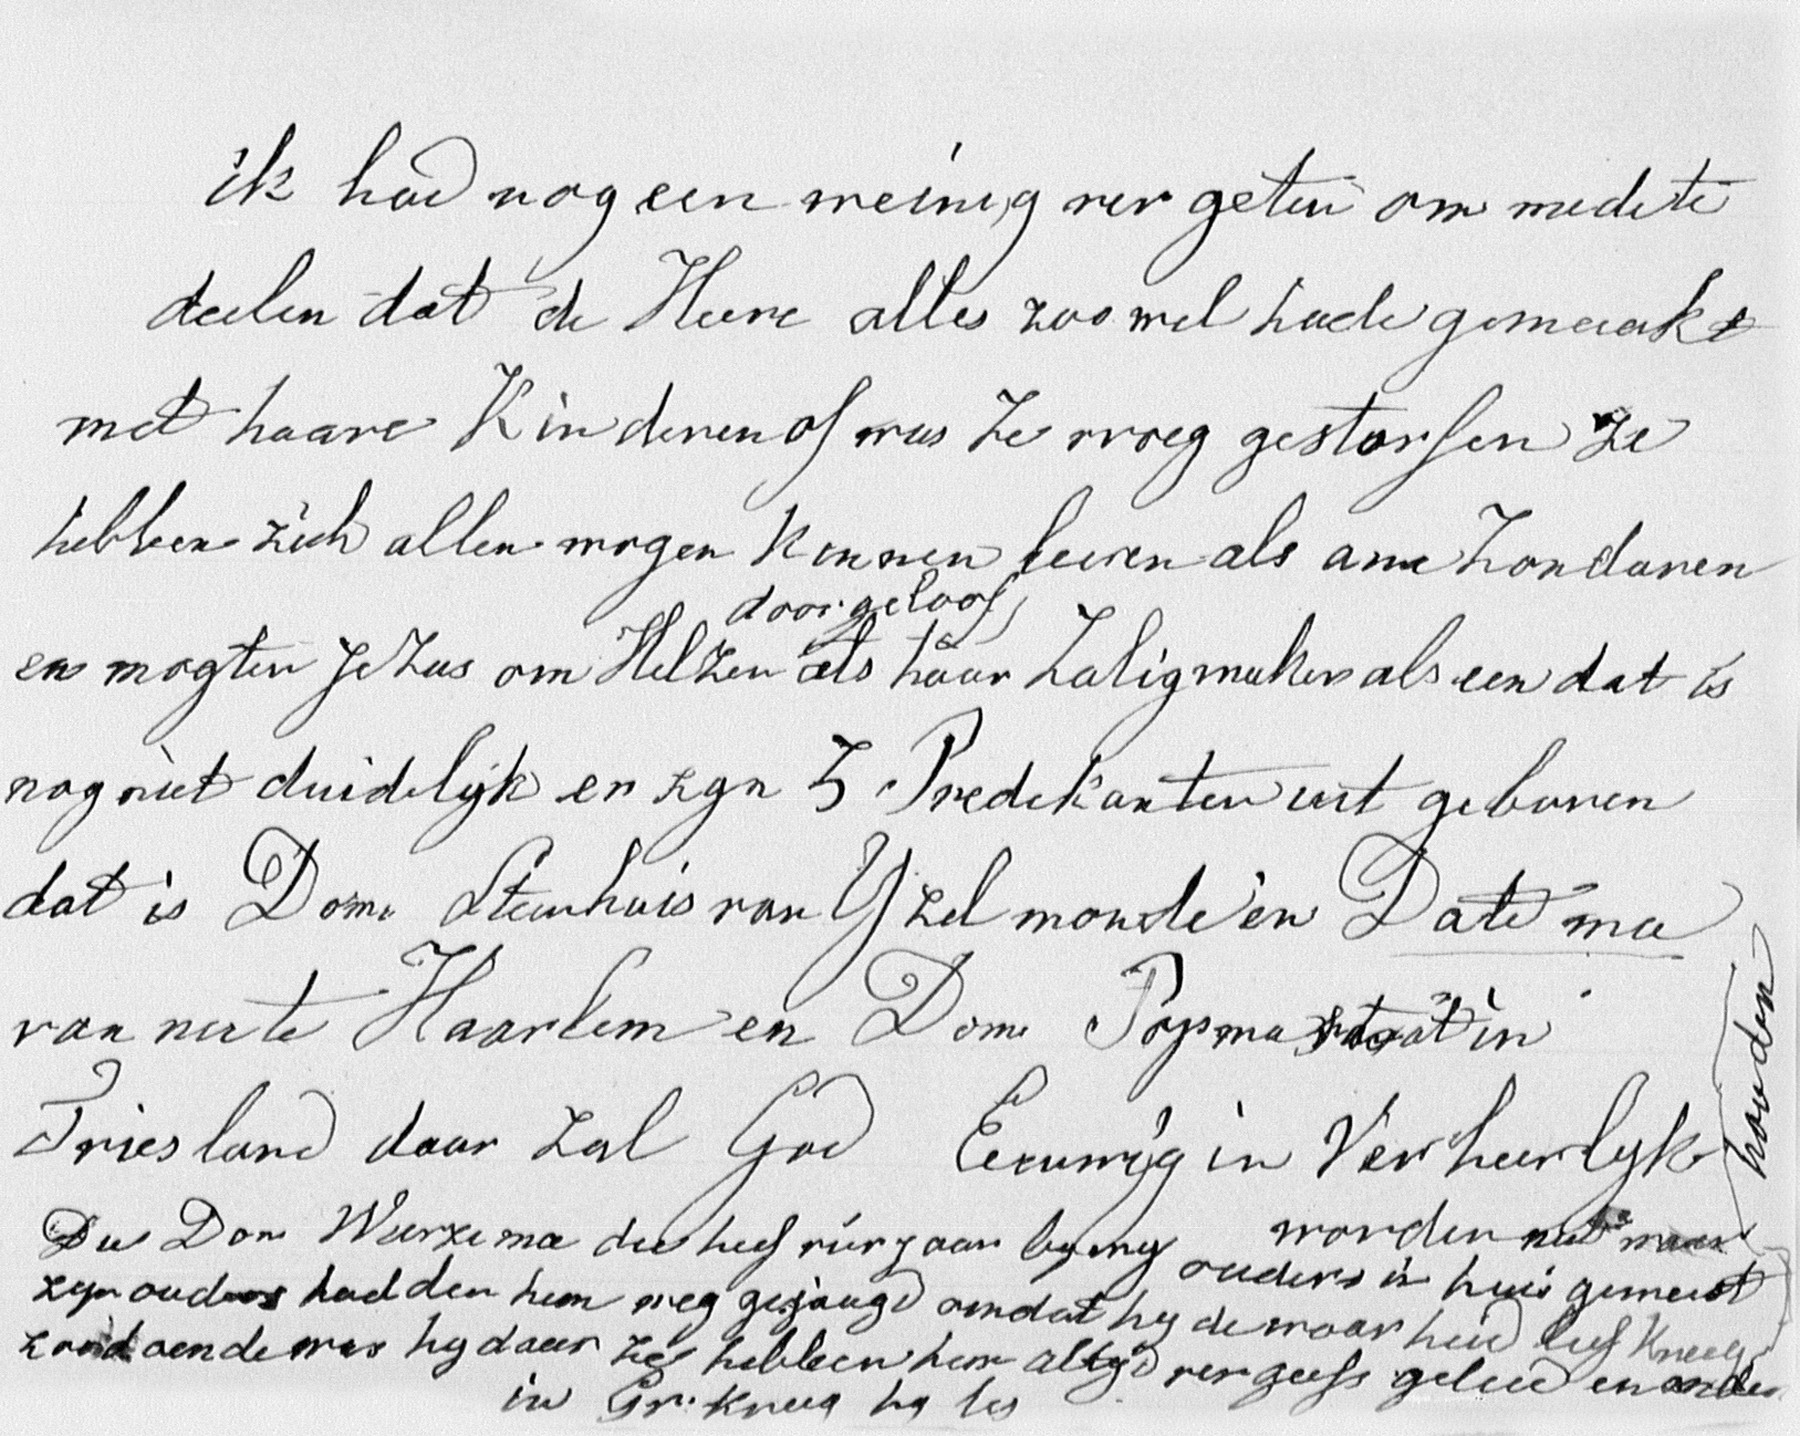 ik had nog een weinig vergeten om mede te
deelen dat de Heere alles zoo wel hade gemaakt
met haare Kinderen of was ze vroeg gestorfen ze
hebben zich allen mogen kennen leeren als arme Zondaren
door geloof
en mogten JeZus om Helzen als haar Zaligmaker als een dat is
nog niet duidelijk er zyn 3 Predekanten uit geboren
dat is Dome Steenhuis van Yzelmonde en Datema
van neete Haarlem en Dome Popma staat in
Friesland daar zal God Eeuwig in Verheerlyk
worden
houden
Die Dom Wierzema die heef vier jaar by my ouders in huis geweest
zyn ouders hadden hem weg gejaagd omdat hy de waarheid lief Kreeg
zoodoende was hy daar ze hebben hem altyd vergeefs geleed en
in Gr. Kreeg hy les